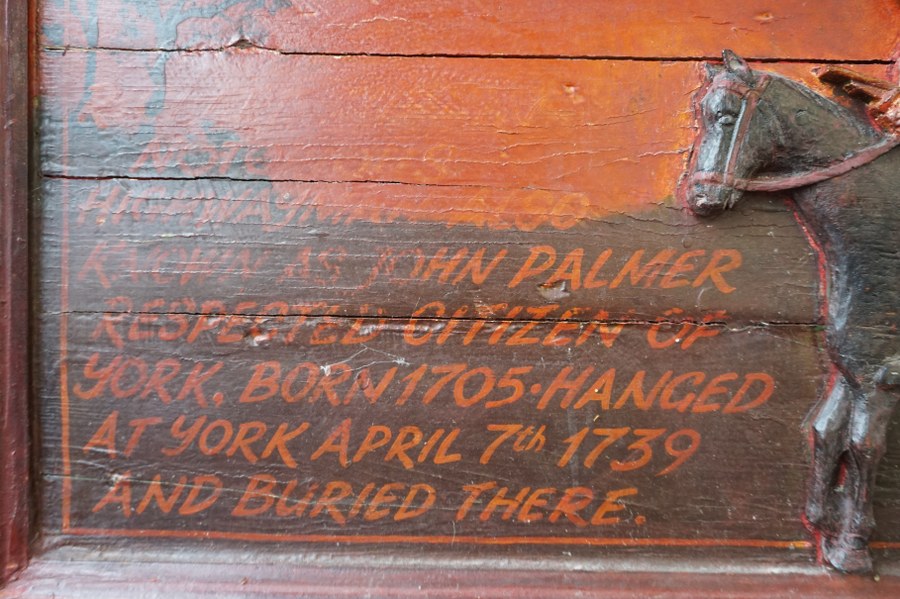 HIGHWAYMAN ALSO
KNOWN AS JOHN PALMER
RESPECTED CITIZEN OF
YORK. BORN 1705·HANGED
AT YORK APRIL 7th 1739
AND BURIED THERE.